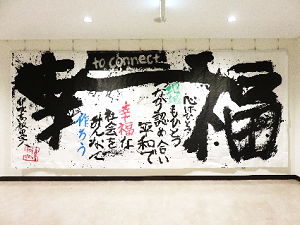 幸福
to connect
心はひとつ
地球もひとつ
ながら認め合い
平和で
幸福な
社会を
みんなで
作ろう